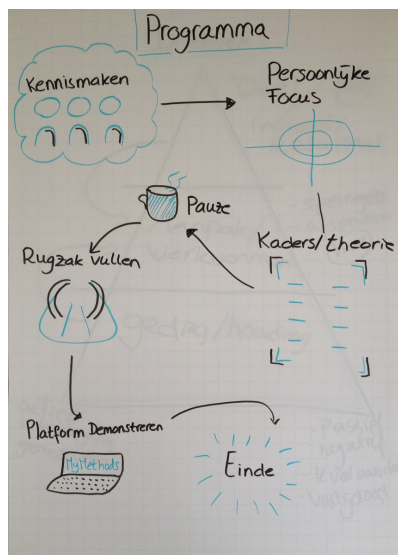 Programma
Kennismaken
Persoonlijke
Focus
Kaders/theorie
Pauze
Rugzak vullen
Platform Demonstreren
MyMethods
Einde